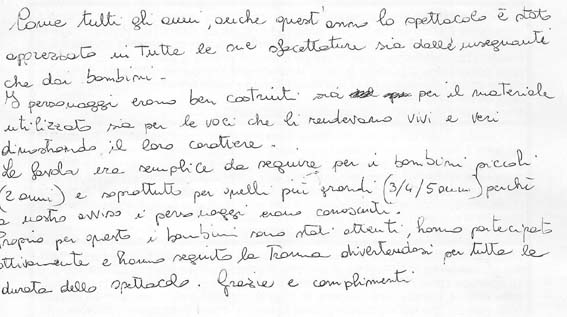 Come tutti gli anni, anche quest'anno lo spettacolo è stato
apprezzato in tutte le sue sfaccettature sia dalle insegnanti
che dai bambini.
I personaggi erano ben costruiti sia per il materiale
utilizzato sia per le voci che li rendevano vivi e veri
dimostrando il loro carattere.
La favola era semplice da seguire per i bambini piccoli
(2 anni) e soprattutto per quelli più grandi (3/4/5 anni) perché
a nostro avviso i personaggi erano conosciuti.
Proprio per questo i bambini sono stati attenti, hanno partecipato
attivamente e hanno seguito la trama divertendosi per tutta la
durata dello spettacolo. Grazie e complimenti